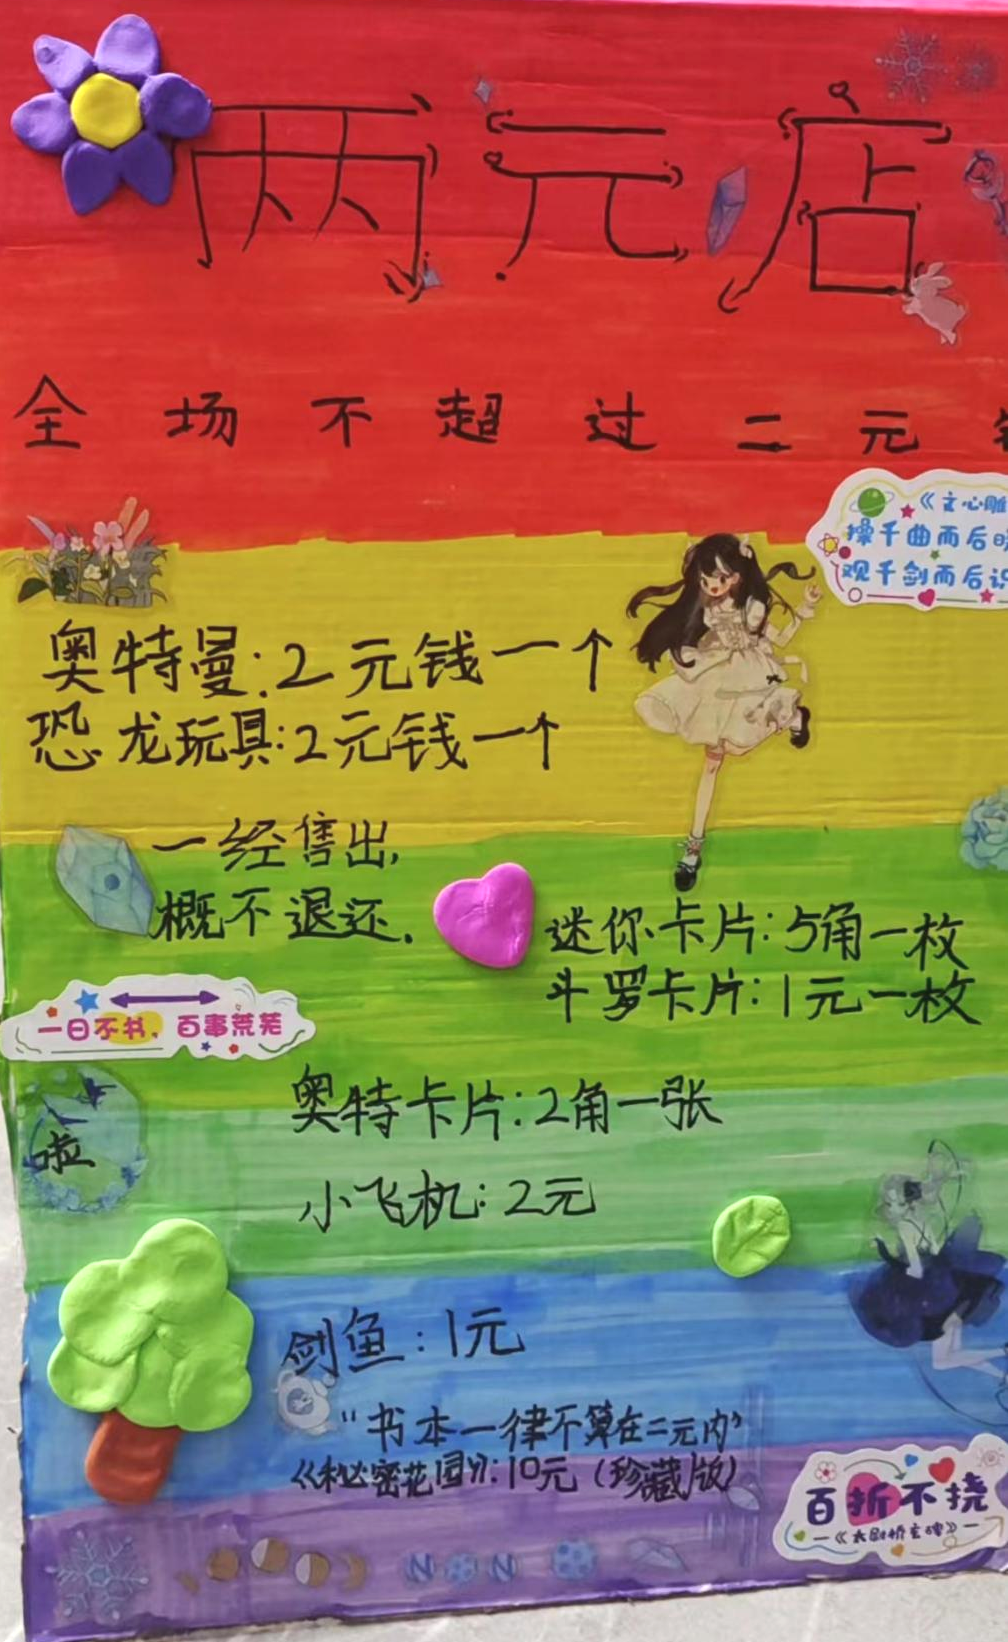 两元店
全场不超过二元
《文心雕
操千曲而后
观千剑而后识
奥特曼:2元钱一个
恐龙玩具:2元钱一个
一经售出,
概不退还.
迷你卡片:5角一枚
斗罗卡片:1元一枚
一日不书,百事荒芜
奥特卡片:2角一张
啦
小飞机:2元
剑鱼:1元
"书本一律不算在二元内"
《秘密花园》:10元(珍藏版)
百折不挠
—《太尉桥玄碑》—